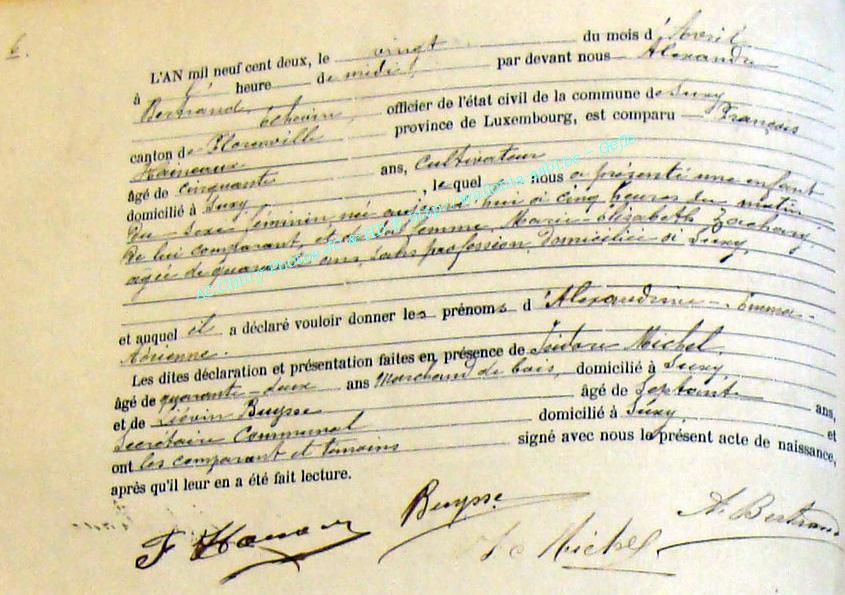 6.
L'AN mil neuf cent deux, le vingt du mois d'Avril
à heure de midi par devant nous Alexandre
Bertrand, Échevin, officier de l'état civil de la commune de Suxy
canton de Florenville province de Luxembourg, est comparu François
Haineaux
âgé de cinquante ans, Cultivateur
domicilié à Suxy, lequel nous a présenté une enfant
du sexe féminin née aujourd'hui à cinq heures du matin
de lui comparant, et de sa femme, Marie Élisabeth Zachary
âgée de ans, sans profession, domiciliée à Suxy
et auquel il a déclaré vouloir donner les prénoms d'Alexandrine - Emma -
Adrienne.
Les dites déclaration et présentation faites en présence de Isidore Michel,
âgé de quarante-deux ans Marchand de bois, domicilié à Suxy
et de Liévin Buysse âgé de Septante ans,
Secrétaire Communal domicilié à Suxy, et
ont les comparant et témoins signé avec nous le présent acte de naissance,
après qu'il leur en a été fait lecture.
F Buysse Michel A. Bertrand